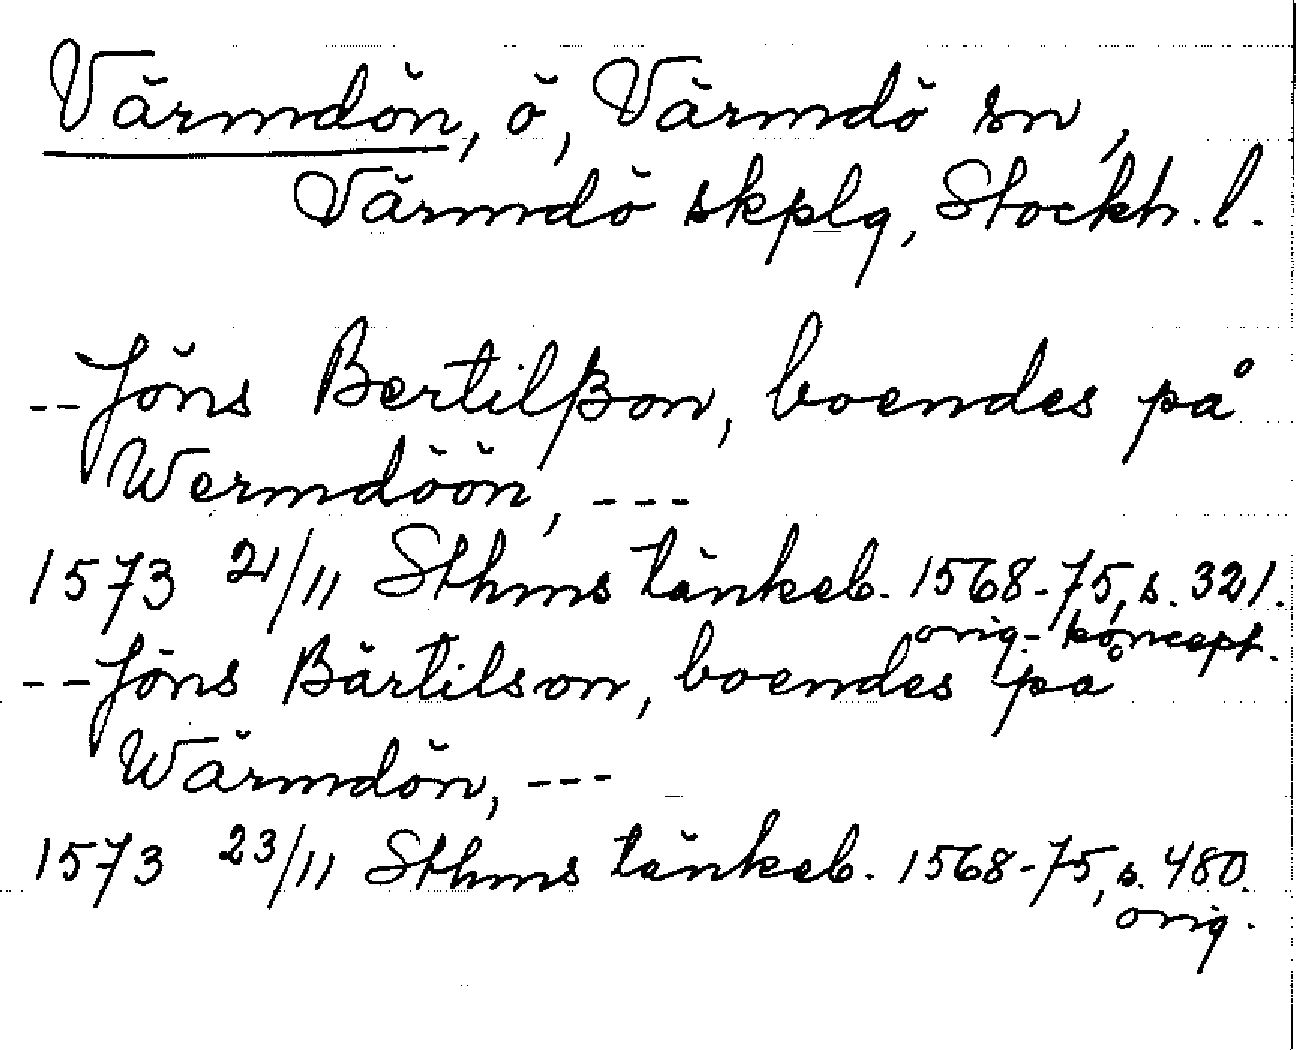 Värmdön, ö, Värmdö sn,
Värmdö skplg, Stockh. l.
--Jöns Bertilßon, boendes på
Wermdöön, ---
1573 21/11 Sthms tänkeb. 1568-75, s. 321.
orig. koncept.
--Jöns Bärtilson, boendes på
Wärmdön, ---
1573 23/11 Sthms tänkeb. 1568-75, s. 480.
orig.